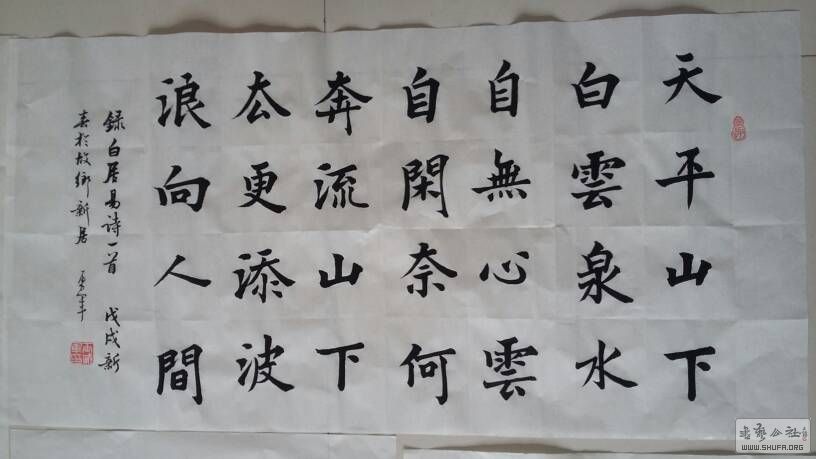 天平山下
白雲泉水
自無心雲
自閑奈何
奔流山下
厺更添波
浪向人間
録白居易诗一首 戊戌新
春於故鄉新居
书艺公社
WWW.SHUFA.ORG